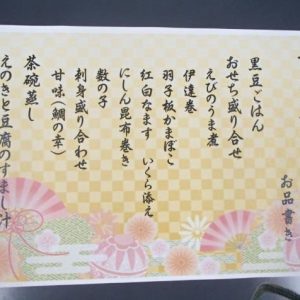 お品書き
黒豆ごはん
おせち盛り合せ
えびのうま煮
伊達巻
羽子板かまぼこ
紅白なます いくら添え
にしん昆布巻き
数の子
刺身盛り合わせ
甘味(鯛の幸)
茶碗蒸し
えのきと豆腐のすまし汁